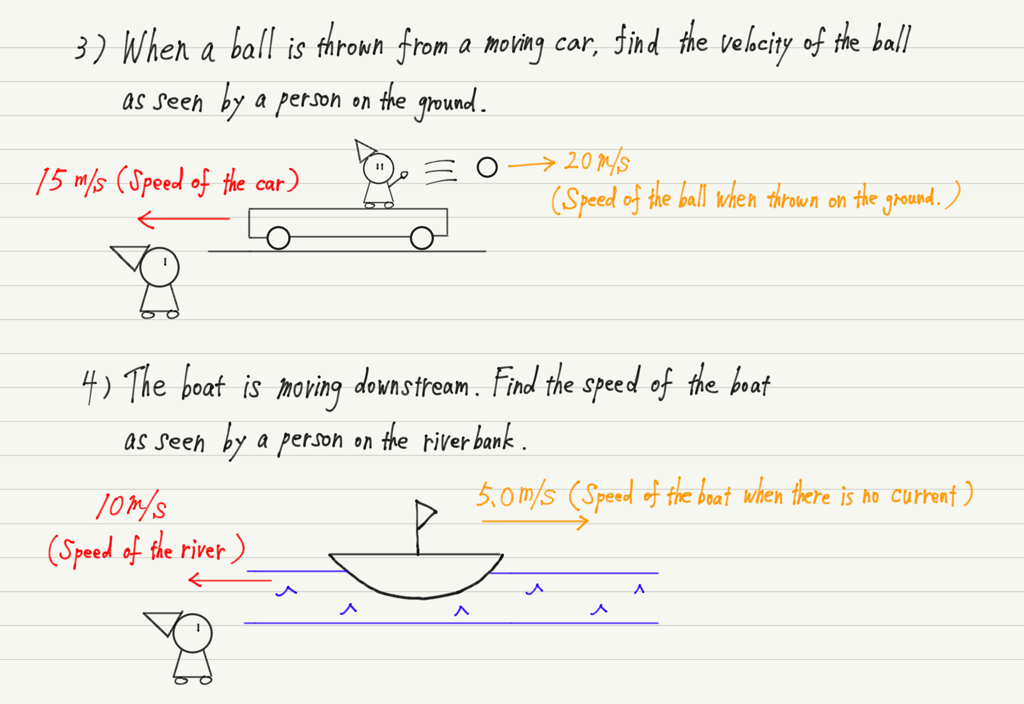 3) When a ball is thrown from a moving car, find the velocity of the ball
as seen by a person on the ground.
15 m/s (Speed of the car)
20 m/s
(Speed of the ball when thrown on the ground.)
4) The boat is moving downstream. Find the speed of the boat
as seen by a person on the river bank.
10 m/s
(Speed of the river)
5.0 m/s (Speed of the boat when there is no current)